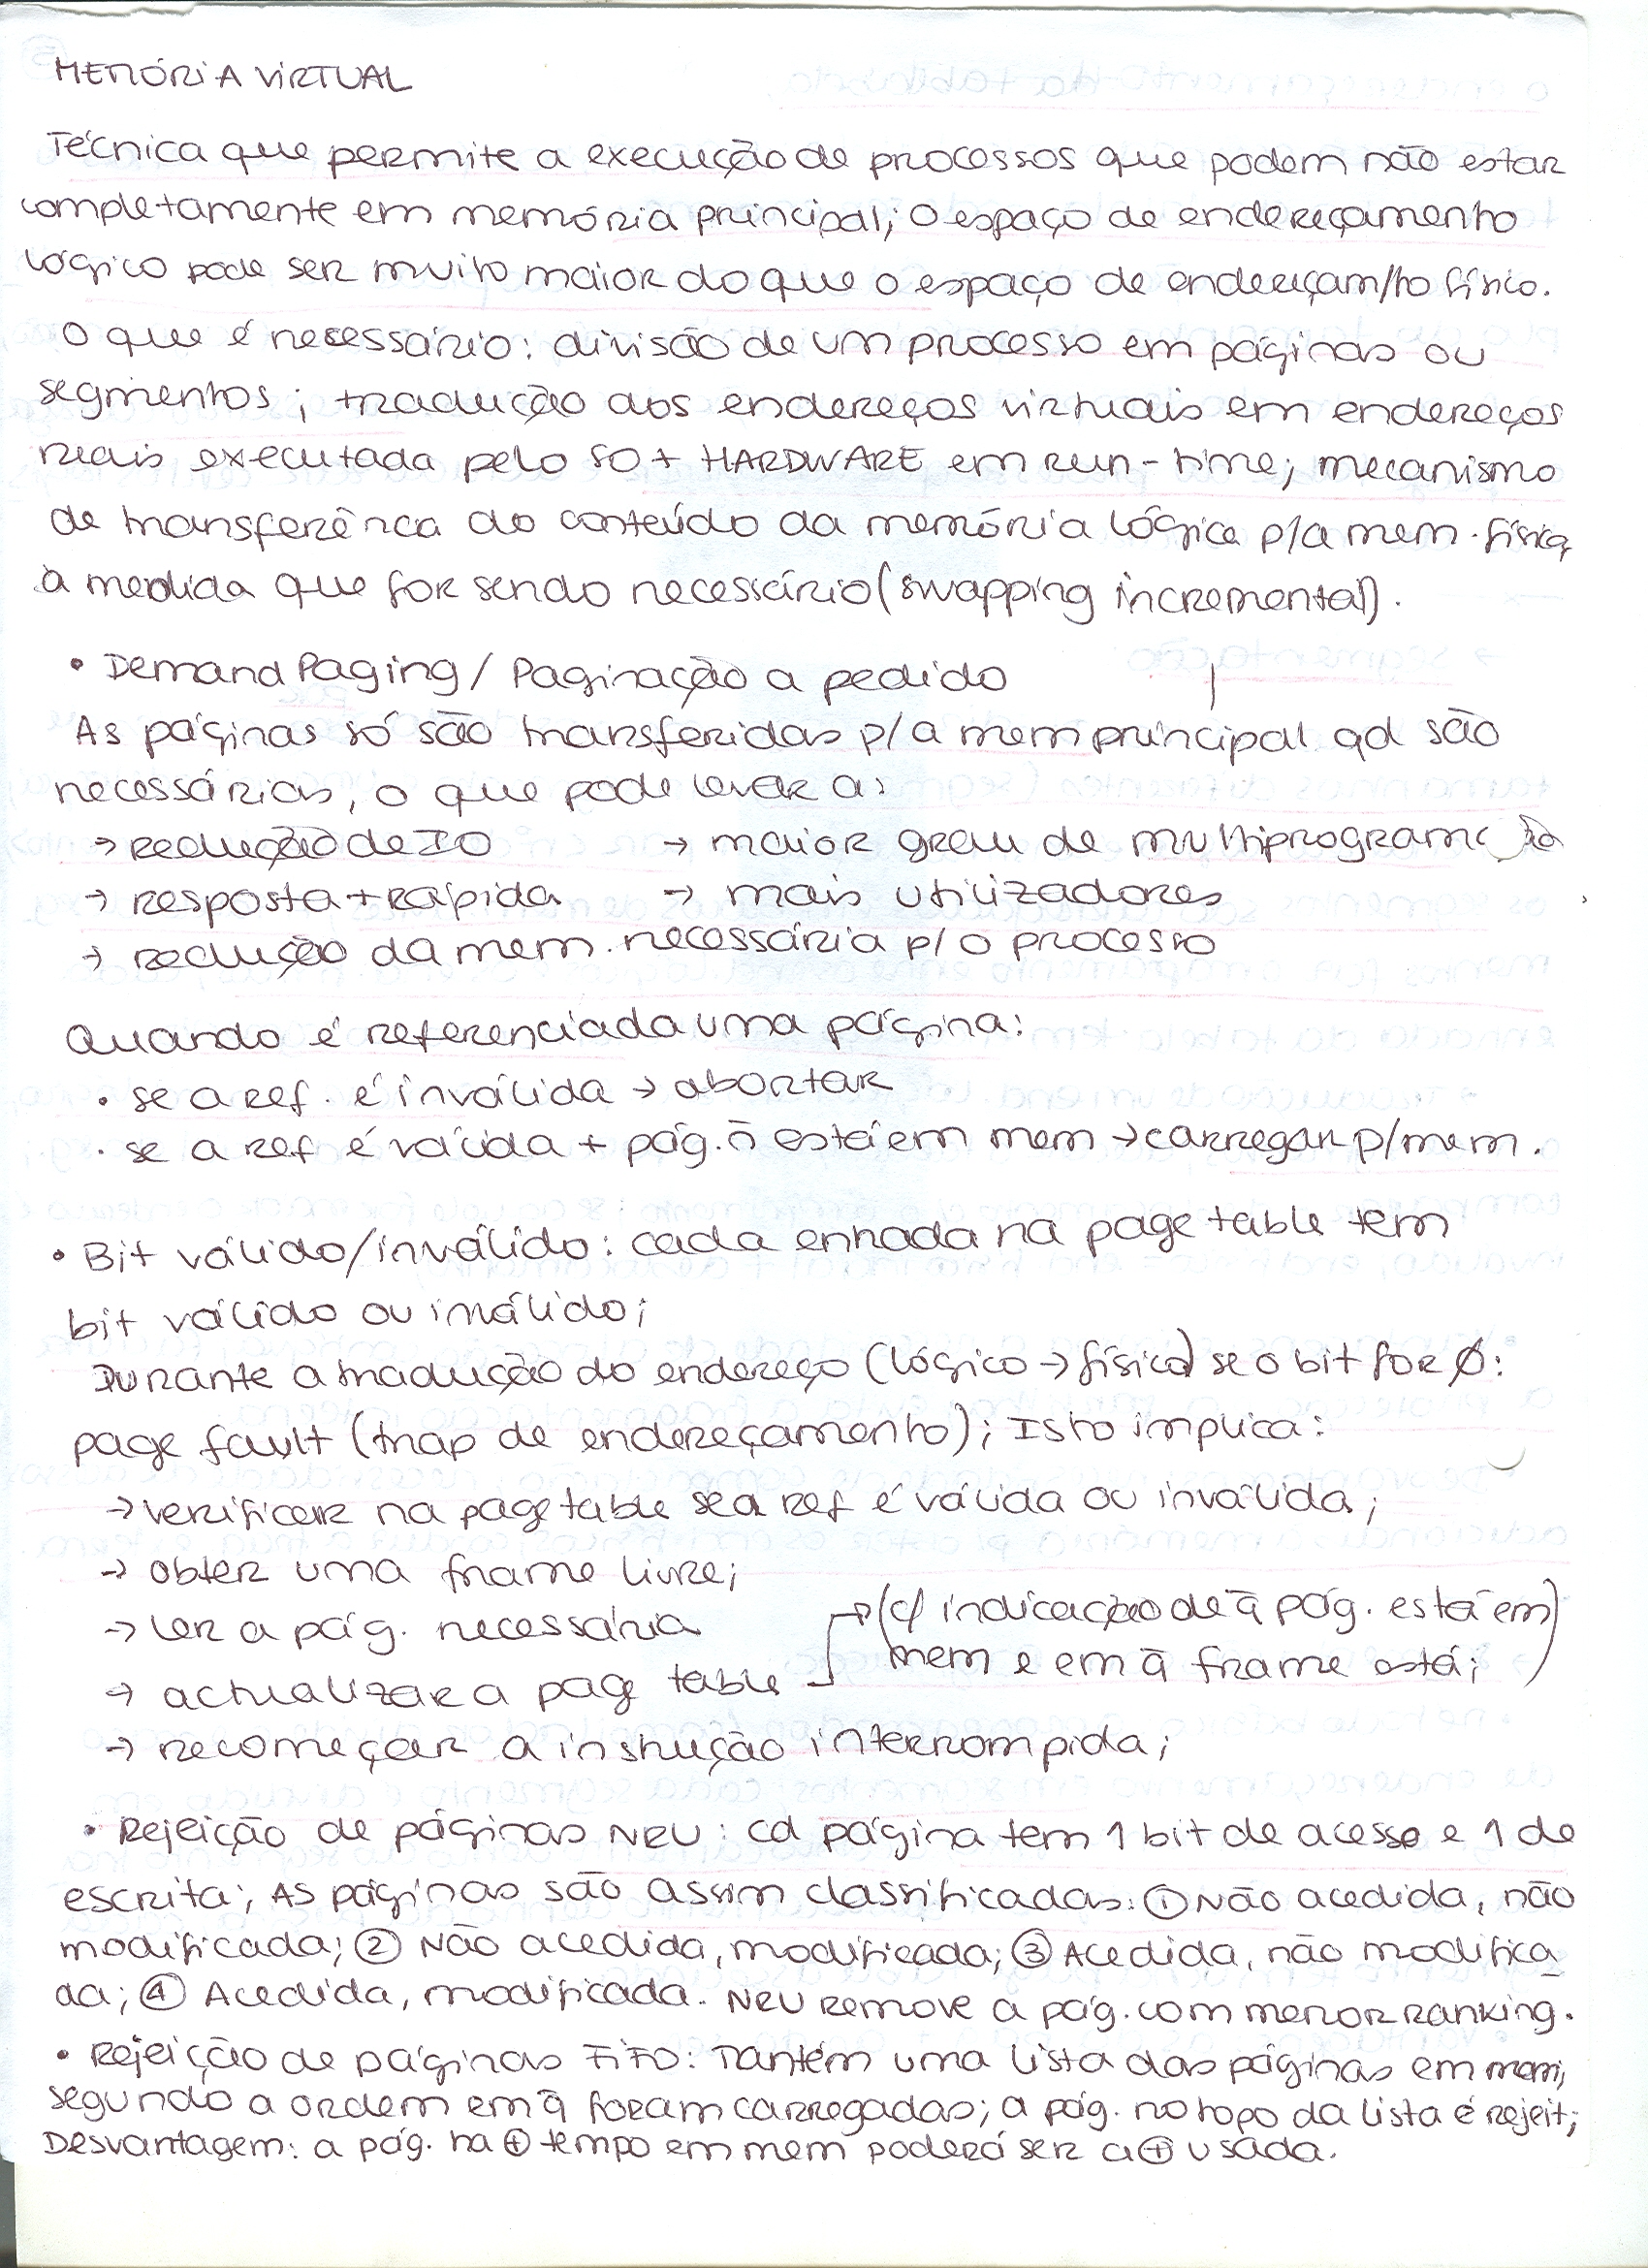 MEMÓRIA VIRTUAL
Técnica que permite a execução de processos que podem não estar
completamente em memória principal; O espaço de endereçamento
lógico pode ser muito maior do que o espaço de endereçam/to físico.
O que é necessário: divisão de um processo em páginas ou
segmentos; tradução dos endereços virtuais em endereços
reais executada pelo SO + HARDWARE em run-time; mecanismo
de transferência do conteúdo da memória lógica p/a mem. física
à medida que for sendo necessário (swapping incremental).
• Demand Paging / Paginação a pedido
As páginas só são transferidas p/ a mem principal qd são
necessárias, o que pode levar a:
→ redução de IO → maior grau de multiprogramação
→ resposta + rápida → mais utilizadores
→ redução da mem. necessária p/ o processo
Quando é referenciada uma página:
• se a ref. é inválida → abortar
• se a ref é válida + pág. ñ está em mem → carregar p/mem.
• Bit válido/inválido: cada entrada na page table tem
bit válido ou inválido;
Durante a tradução do endereço (lógico → físico) se o bit for Ø:
page fault (trap de endereçamento); Isto implica:
→ verificar na page table se a ref é válida ou inválida;
→ obter uma frame livre;
→ ler a pág. necessária (c/ indicação de q̄ pág. está em
→ actualizar a page table mem e em q̄ frame está;)
→ recomeçar a instrução interrompida;
• Rejeição de páginas NRU: cd página tem 1 bit de acesso e 1 de
escrita; As páginas são assim classificadas: ① Não acedida, não
modificada; ② Não acedida, modificada; ③ Acedida, não modifica_
da; ④ Acedida, modificada. NRU remove a pág. com menor ranking.
• Rejeição de páginas FIFO: Mantém uma lista das páginas em mem,
segundo a ordem em q̄ foram carregadas; a pág. no topo da lista é rejeit;
Desvantagem: a pág. há ⊕ tempo em mem poderá ser a ⊕ usada.